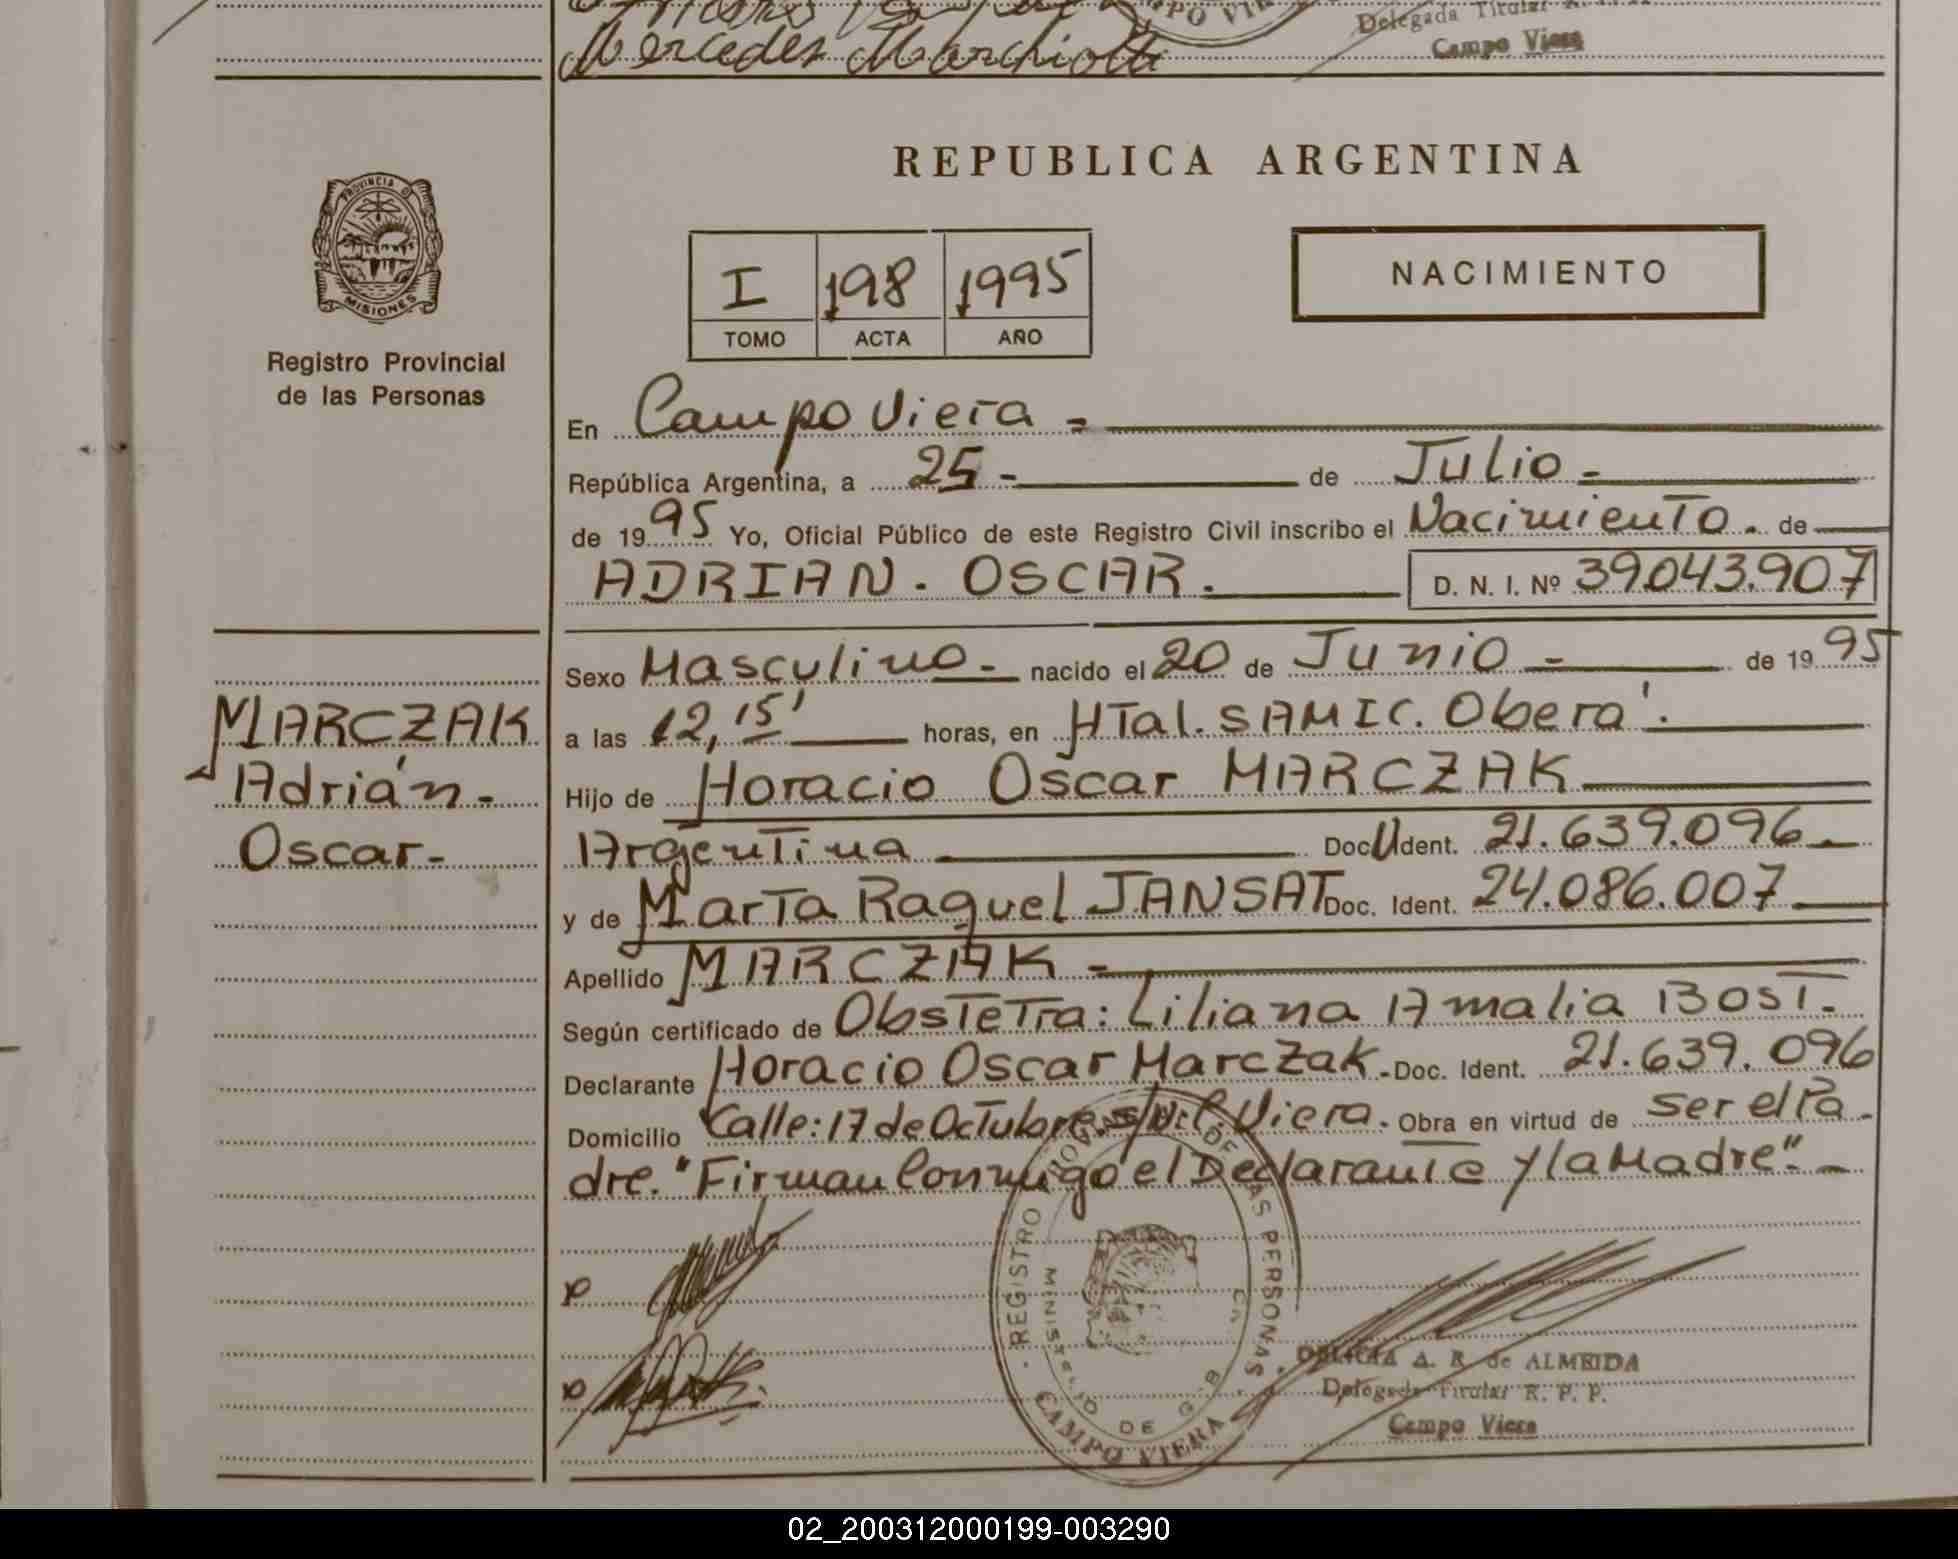 Mercedes Marchiott
PO VIE
Delegada Titular R.
Campo Viera
PROVINCIA D
MISIONES
Registro Provincial
de las Personas
REPUBLICA ARGENTINA
I 198 1995
TOMO ACTA AÑO
NACIMIENTO
En Campo Viera =
República Argentina, a 25 - de Julio -
de 1995 Yo, Oficial Público de este Registro Civil inscribo el Nacimiento. de
ADRIAN. OSCAR. D. N. I. Nº 39.043.907
Sexo Masculino - nacido el 20 de Junio - de 1995
MARCZAK
Adrián -
Oscar -
a las 12,15' horas, en HTal. SAMIC. Oberá.
Hijo de Horacio Oscar MARCZAK
Argentina DocU Ident. 21.639.096
y de Marta Raquel JANSAT Doc. Ident. 24.086.007
Apellido MARCZAK -
Según certificado de Obstetra: Liliana Amalia BOST.
Declarante Horacio Oscar Marczak. Doc. Ident. 21.639.096
Domicilio Calle: 17 de Octubre s/N. C. Viera. Obra en virtud de ser el Pa
dre. "Firman Conmigo el Declarante y la Madre". -
REGISTRO PROVINCIAL DE LAS PERSONAS
MINISTERIO DE G.
CAMPO VIERA
A. R. de ALMEIDA
Delegada Titular R. P. P.
Campo Viera
02_200312000199-003290